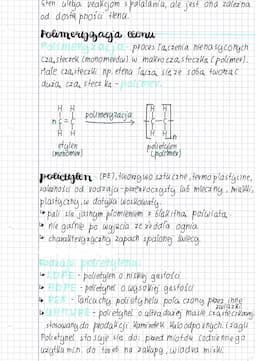 Eten ulega reakcjom spalalania, ale jest ona zależna
od dostępności tlenu.
Polimeryzacja etenu
Polimeryzacja - proces łączenia nienasyconych
cząsteczek (monomerów) w makrocząsteczkę (polimer).
Małe cząsteczki np. etenu łączą się ze sobą tworząc
dużą cząsteczkę - polimer.
H H
n C = C
H H
polimeryzacja
H H
C - C
H H
n
etylen
(monomer)
polietylen
(polimer)
polietylen (PE), tworzywo sztuczne, termoplastyczne,
zależności od rodzaju - przezroczysty lub mleczny, miękki,
plastyczny, w dotyku woskowaty.
↳ pali się jasnym płomieniem z błękitną poświatą
↳ nie gaśnie po wyjęciu ze źródła ognia
↳ charakterystyczny zapach spalonej świecy
Rodzaje polietylenu:
↳ LDPE - polietylen o niskiej gęstości
↳ HDPE - polietylen o wysokiej gęstości
↳ PEX - łańcuchy polietylenu połączone przez inne
związki
↳ UHMWPE - polietylen o ultra dużej masie cząsteczkowej
stosowany do produkcji kamizelek kuloodpornych i żagli
Polietylen stosuje się do: przedmiotów codziennego
użytku min. do toreb na zakupy, wiadra, miski